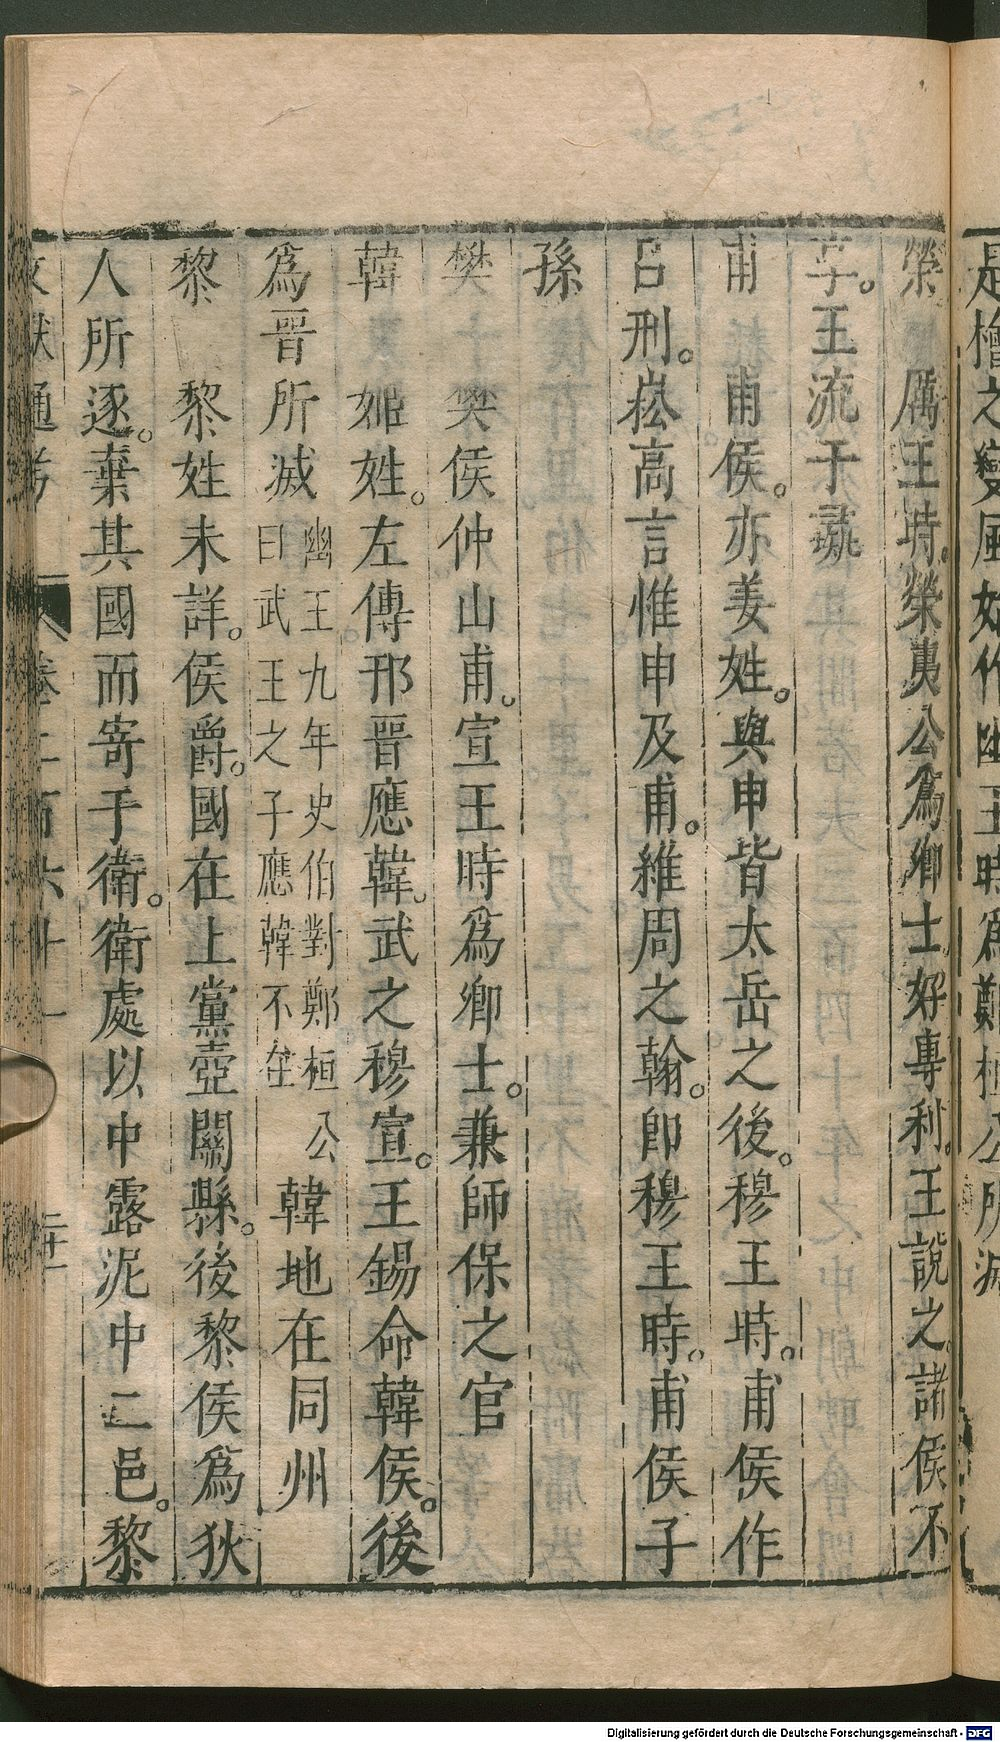 是檜之變風始作幽王時爲鄭桓公所滅
榮　厲王時。榮夷公爲卿士。好專利。王說之。諸侯不
享。王流于彘
甫　甫侯。亦姜姓。與申皆太岳之後。穆王時。甫侯作
呂刑。崧高言惟申及甫。維周之翰。卽穆王時。甫侯子
孫
樊　樊侯仲山甫。宣王時爲卿士。兼師保之官
韓　姬姓。左傳邘晉應韓。武之穆宣。王錫命韓侯。後
爲晉所滅幽王九年史伯對鄭桓公曰武王之子應韓不在韓地在同州
黎　黎姓未詳。侯爵。國在上黨壺關縣。後黎侯爲狄
人所逐。棄其國而寄于衛。衛處以中露泥中二邑。黎
文獻通考　卷二百六十一　二十一
Digitalisierung gefördert durch die Deutsche Forschungsgemeinschaft - DFG